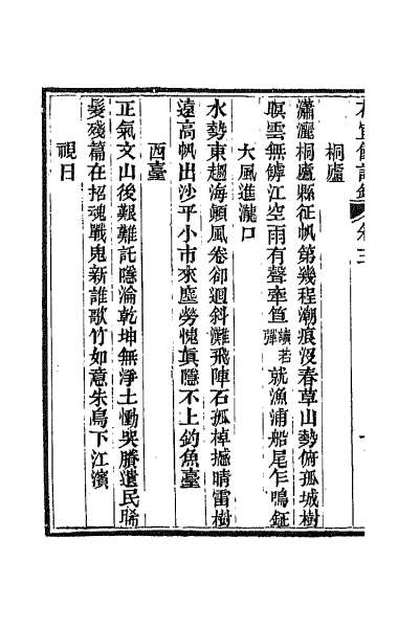 卷三
桐廬
瀟灑桐廬縣征帆第幾程潮痕沒春草山勢俯孤城樹
暝雲無罅江空雨有聲牽笪讀若彈就漁浦船尾乍鳴鉦
大風進瀧口
水勢東趨海顛風卷卻迴斜灘飛陣石孤棹撼晴雷樹
遠高帆出沙平小市來塵勞愧眞隱不上釣魚臺
西臺
正氣文山後艱難託隱淪乾坤無淨土慟哭賸遺民晞
髮殘篇在招魂戰鬼新誰歌竹如意朱鳥下江濱
視日